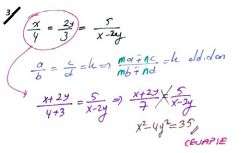 3) x/4 = 2y/3 = 5/(x-2y)
a/b = c/d = k ⇒ (ma+nc)/(mb+nd) = k
(x+2y)/(4+3) = 5/(x-2y) ⇒ (x+2y)/7 = 5/(x-2y)
x²-4y²=35
CEVAP: E